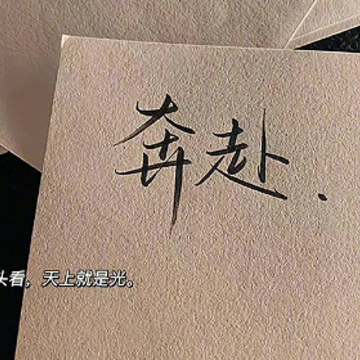 奔赴.
头看，天上就是光。